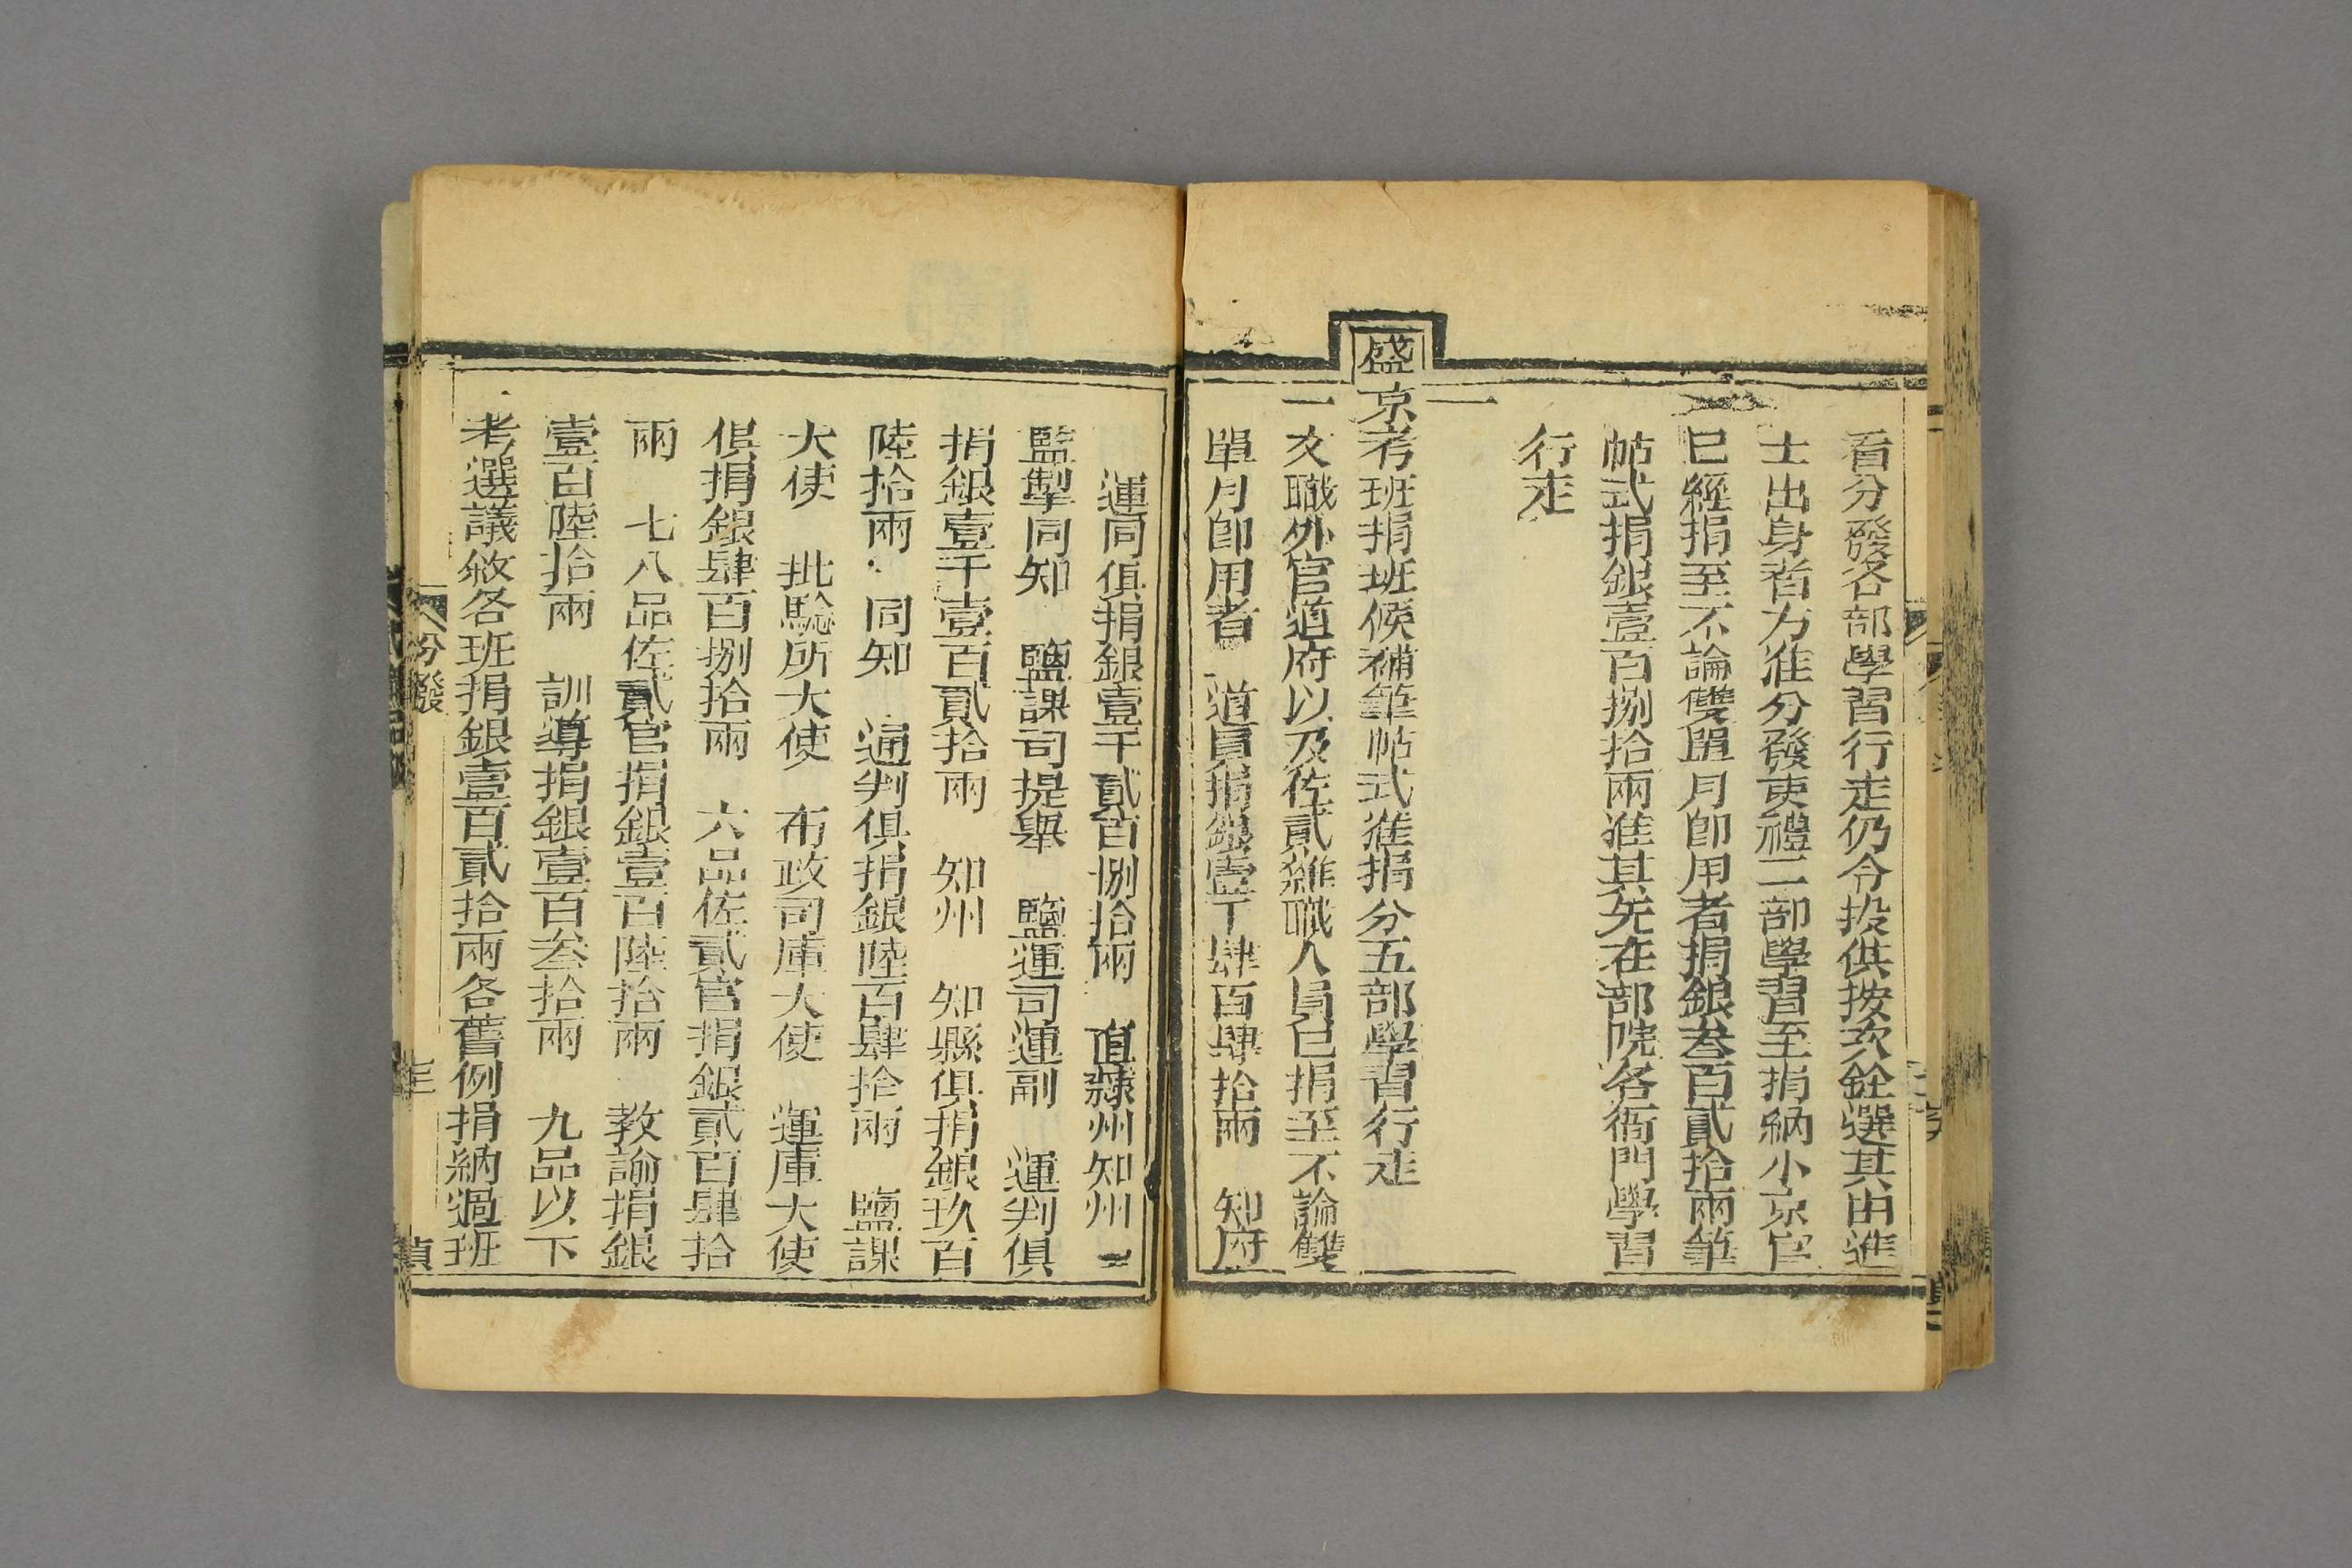 者分發各部學習行走仍令投供按次銓選其由進
士出身者方准分發吏禮二部學習至捐納小京官
已經捐至不論雙單月卽用者捐銀叁百貳拾兩筆
帖式捐銀壹百捌拾兩准其先在部院各衙門學習
行走
一
盛京考班捐班候補筆帖式准捐分五部學習行走
一文職外官道府以及佐貳雜職人員已捐至不論雙
單月卽用者 道員捐銀壹千肆百肆拾兩 知府
運同俱捐銀壹千貳百捌拾兩 直隸州知州
監掣同知 鹽課司提舉 鹽運司運副 運判俱
捐銀壹千壹百貳拾兩 知州 知縣俱捐銀玖百
陸拾兩 同知 通判俱捐銀陸百肆拾兩 鹽課
大使 批驗所大使 布政司庫大使 運庫大使
俱捐銀肆百捌拾兩 六品佐貳官捐銀貳百肆拾
兩 七八品佐貳官捐銀壹百陸拾兩 教諭捐銀
壹百陸拾兩 訓導捐銀壹百叁拾兩 九品以下
考選議敘各班捐銀壹百貳拾兩各舊例捐納過班
分發